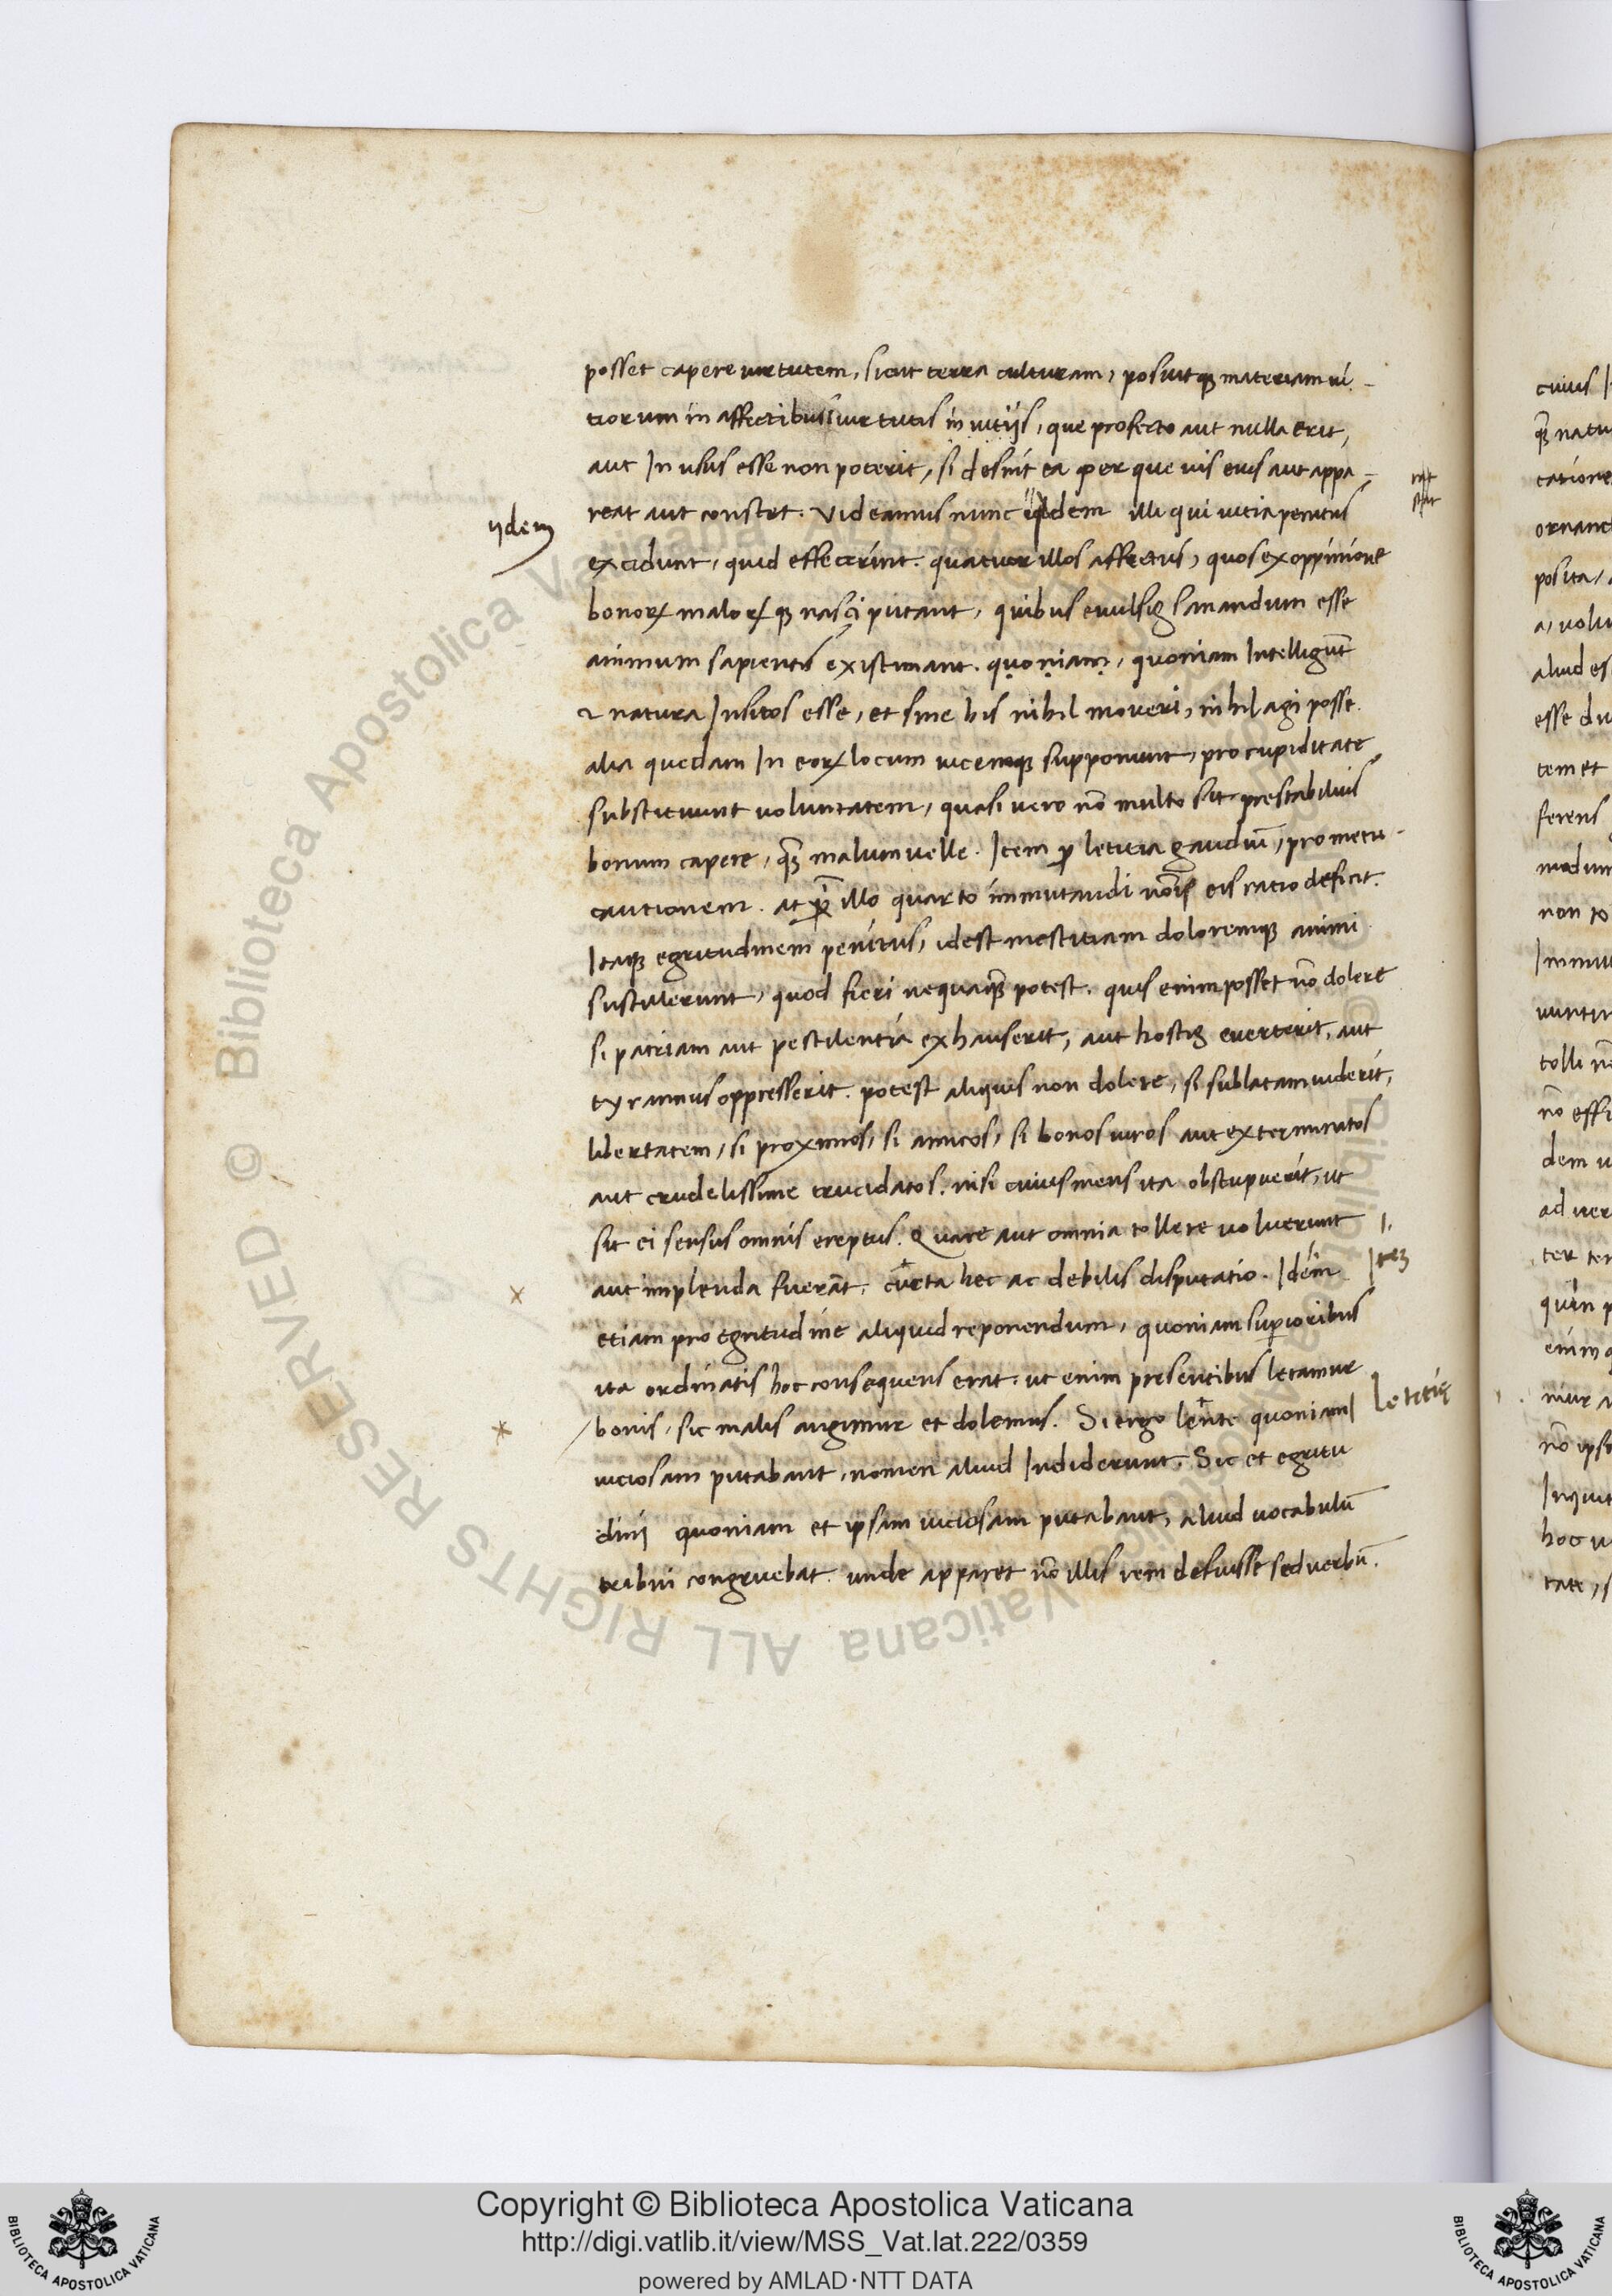 posset capere virtutem, sicut terra culturam, posuitqꝫ materiam ui-
tiorum in affectibus uirtutis in uitijs, que profecto aut nulla erit,
aut In usus esse non poterit, si desint ea per que uis eius aut appa-
reat aut constet. Videamus nunc dem illi qui uitia penitus
ijdem
excidunt, quid effecerint. quatuor illos affectus, quos ex oppinione
bonoꝝ maloꝝqꝫ nasci putant, quibus euulsis sanandum esse
animum sapientis existimant. quoniam, quoniam Intelligūt
z natura Insitos esse, et sine his nihil moueri, nihil agi posse.
alia quedam In eoꝝ locum uicemqꝫ supponunt, pro cupiditate
substituunt voluntatem, quasi uero nō multo sit prestabilius
bonum capere, qꝫ̄ malum uelle. Item ꝓ letitia gaudiū, pro metu
cautionem. at illo quarto immutandi nōis eis ratio deficit.
Itaqꝫ egritudinem penitus, idest mestitiam doloremqꝫ animi
sustulerunt, quod fieri nequaqꝫ̄ potest. quis enim posset nō dolere
si patriam aut pestilentia exhauserit, aut hostis euerterit, aut
tyrannus oppresserit. potest aliquis non dolere, si sublatam uiderit,
libertatem, si proximos, si amicos, si bonos uiros aut exterminatos
aut crudelissime trucidatos. nisi cuius mens ita obstupuerit, ut
sit ei sensus omnis ereptus. Quare aut omnia tollere uoluerunt
aut implenda fuerāt. curta hec ac debilis disputatio. Idem
etiam pro egritudine aliquid reponendum, quoniam superioribus
ita ordinatis hoc consequens erat. ut enim presentibus letamur
bonis, sic malis angimur et dolemus. Si ergo quoniam
letitię
uiciosam putabant, nomen aliud Indiderunt. Sic et egritu
dini quoniam et ipsam uiciosam putabant, aliud uocabulū
tribui congruebat. unde apparet nō illis rem defuisse sed verbū.
© Biblioteca Apostolica Vaticana ALL RIGHTS RESERVED
Copyright © Biblioteca Apostolica Vaticana
http://digi.vatlib.it/view/MSS_Vat.lat.222/0359
powered by AMLAD·NTT DATA
BIBLIOTECA APOSTOLICA VATICANA
BIBLIOTECA APOSTOLICA VATICANA